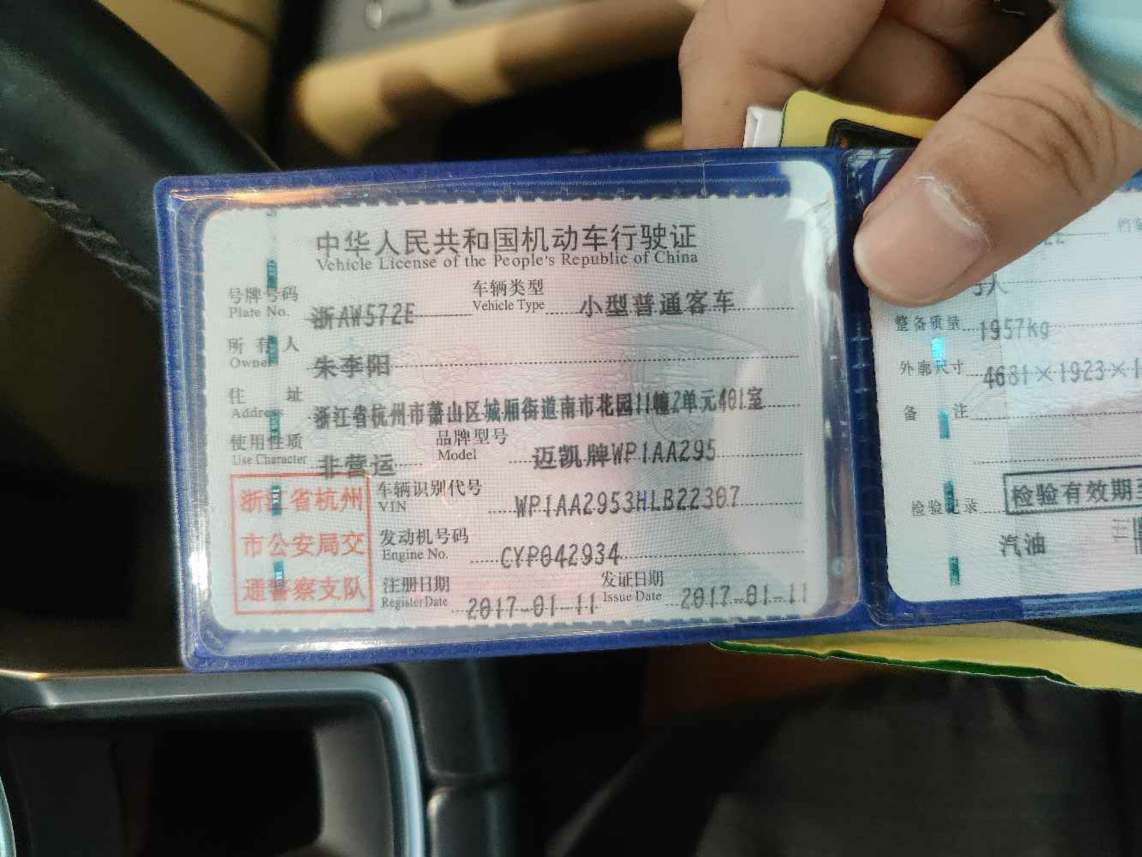 中华人民共和国机动车行驶证
Vehicle License of the People's Republic of China
号牌号码 浙AW572E 车辆类型 小型普通客车
Plate No. Vehicle Type
所有人 朱李阳
Owner
住址 浙江省杭州市萧山区城厢街道南市花园11幢2单元401室
Address
使用性质 非营运 品牌型号 迈凯牌WP1AA295
Use Character Model
浙江省杭州
市公安局交
通警察支队
车辆识别代号 WP1AA2953HLB22307
VIN
发动机号码 CYP042934
Engine No.
注册日期 2017-01-11 发证日期 2017-01-11
Register Date Issue Date
整备质量 1957kg
外廓尺寸 4681×1923×1
备注
检验有效期至
检验记录
汽油